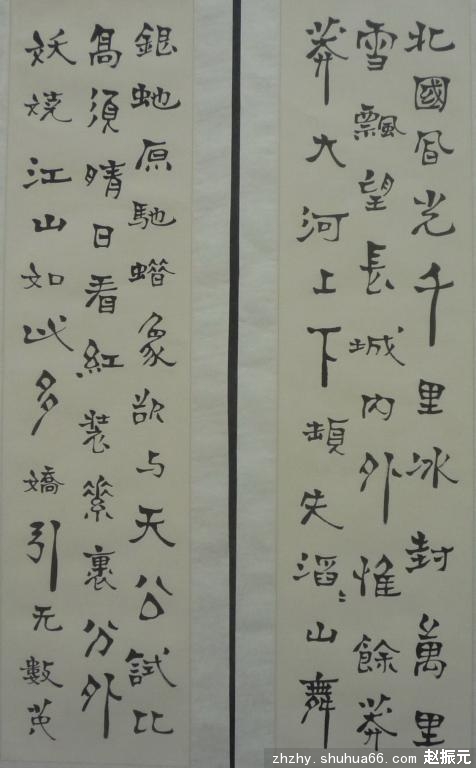 北國風光千里冰封萬里
雪飄望長城内外惟餘莽
莽大河上下頓失滔〻山舞
銀虵原馳蜡象欲与天公試比
高須晴日看紅装素裹分外
妖嬈江山如此多嬌引无數英
zhzhy.shuhua66.com 赵振元